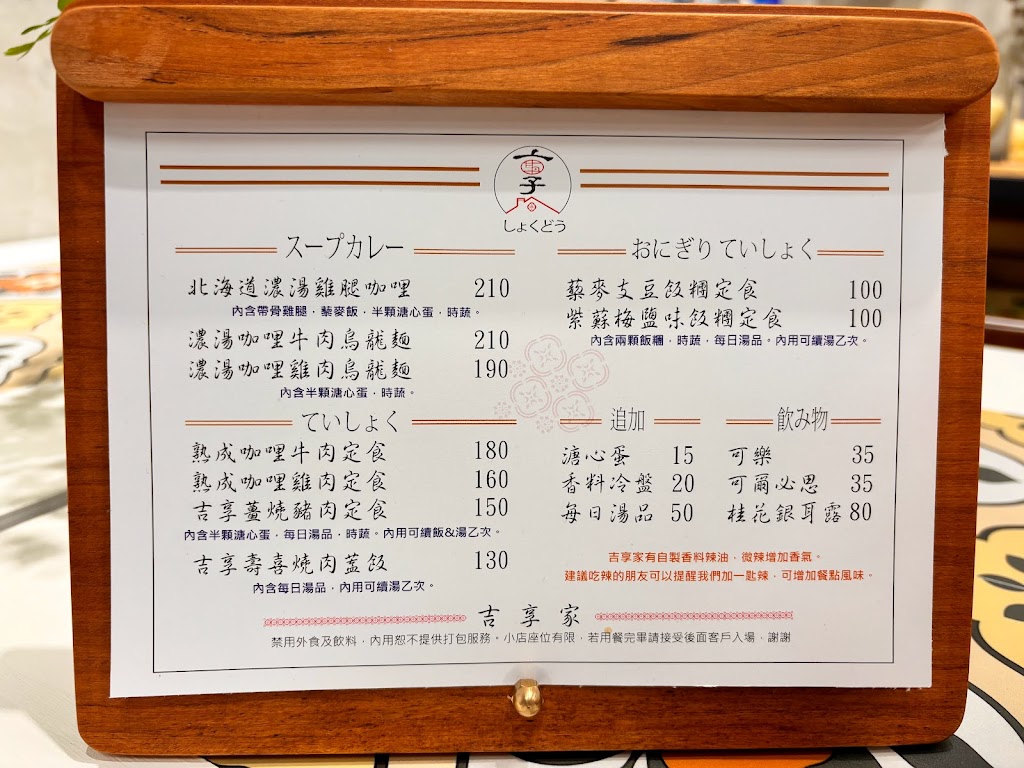 しょくどう
スープカレー
北海道濃湯雞腿咖哩 210
內含帶骨雞腿，藜麥飯，半顆溏心蛋，時蔬。
濃湯咖哩牛肉烏龍麵 210
濃湯咖哩雞肉烏龍麵 190
內含半顆溏心蛋，時蔬。
ていしょく
熟成咖哩牛肉定食 180
熟成咖哩雞肉定食 160
吉享薑燒豬肉定食 150
內含半顆溏心蛋，每日湯品，時蔬。內用可續飯&湯乙次。
吉享壽喜燒肉蓋飯 130
內含每日湯品，內用可續湯乙次。
おにぎり ていしょく
藜麥支豆飯糰定食 100
紫蘇梅鹽味飯糰定食 100
內含兩顆飯糰，時蔬，每日湯品。內用可續湯乙次。
追加
溏心蛋 15
香料冷盤 20
每日湯品 50
飲み物
可樂 35
可爾必思 35
桂花銀耳露 80
吉享家有自製香料辣油，微辣增加香氣。
建議吃辣的朋友可以提醒我們加一點辣，可增加餐點風味。
吉享家
禁用外食及飲料，內用恕不提供打包服務。小店座位有限，若用餐完畢請接受後面客戶入場，謝謝